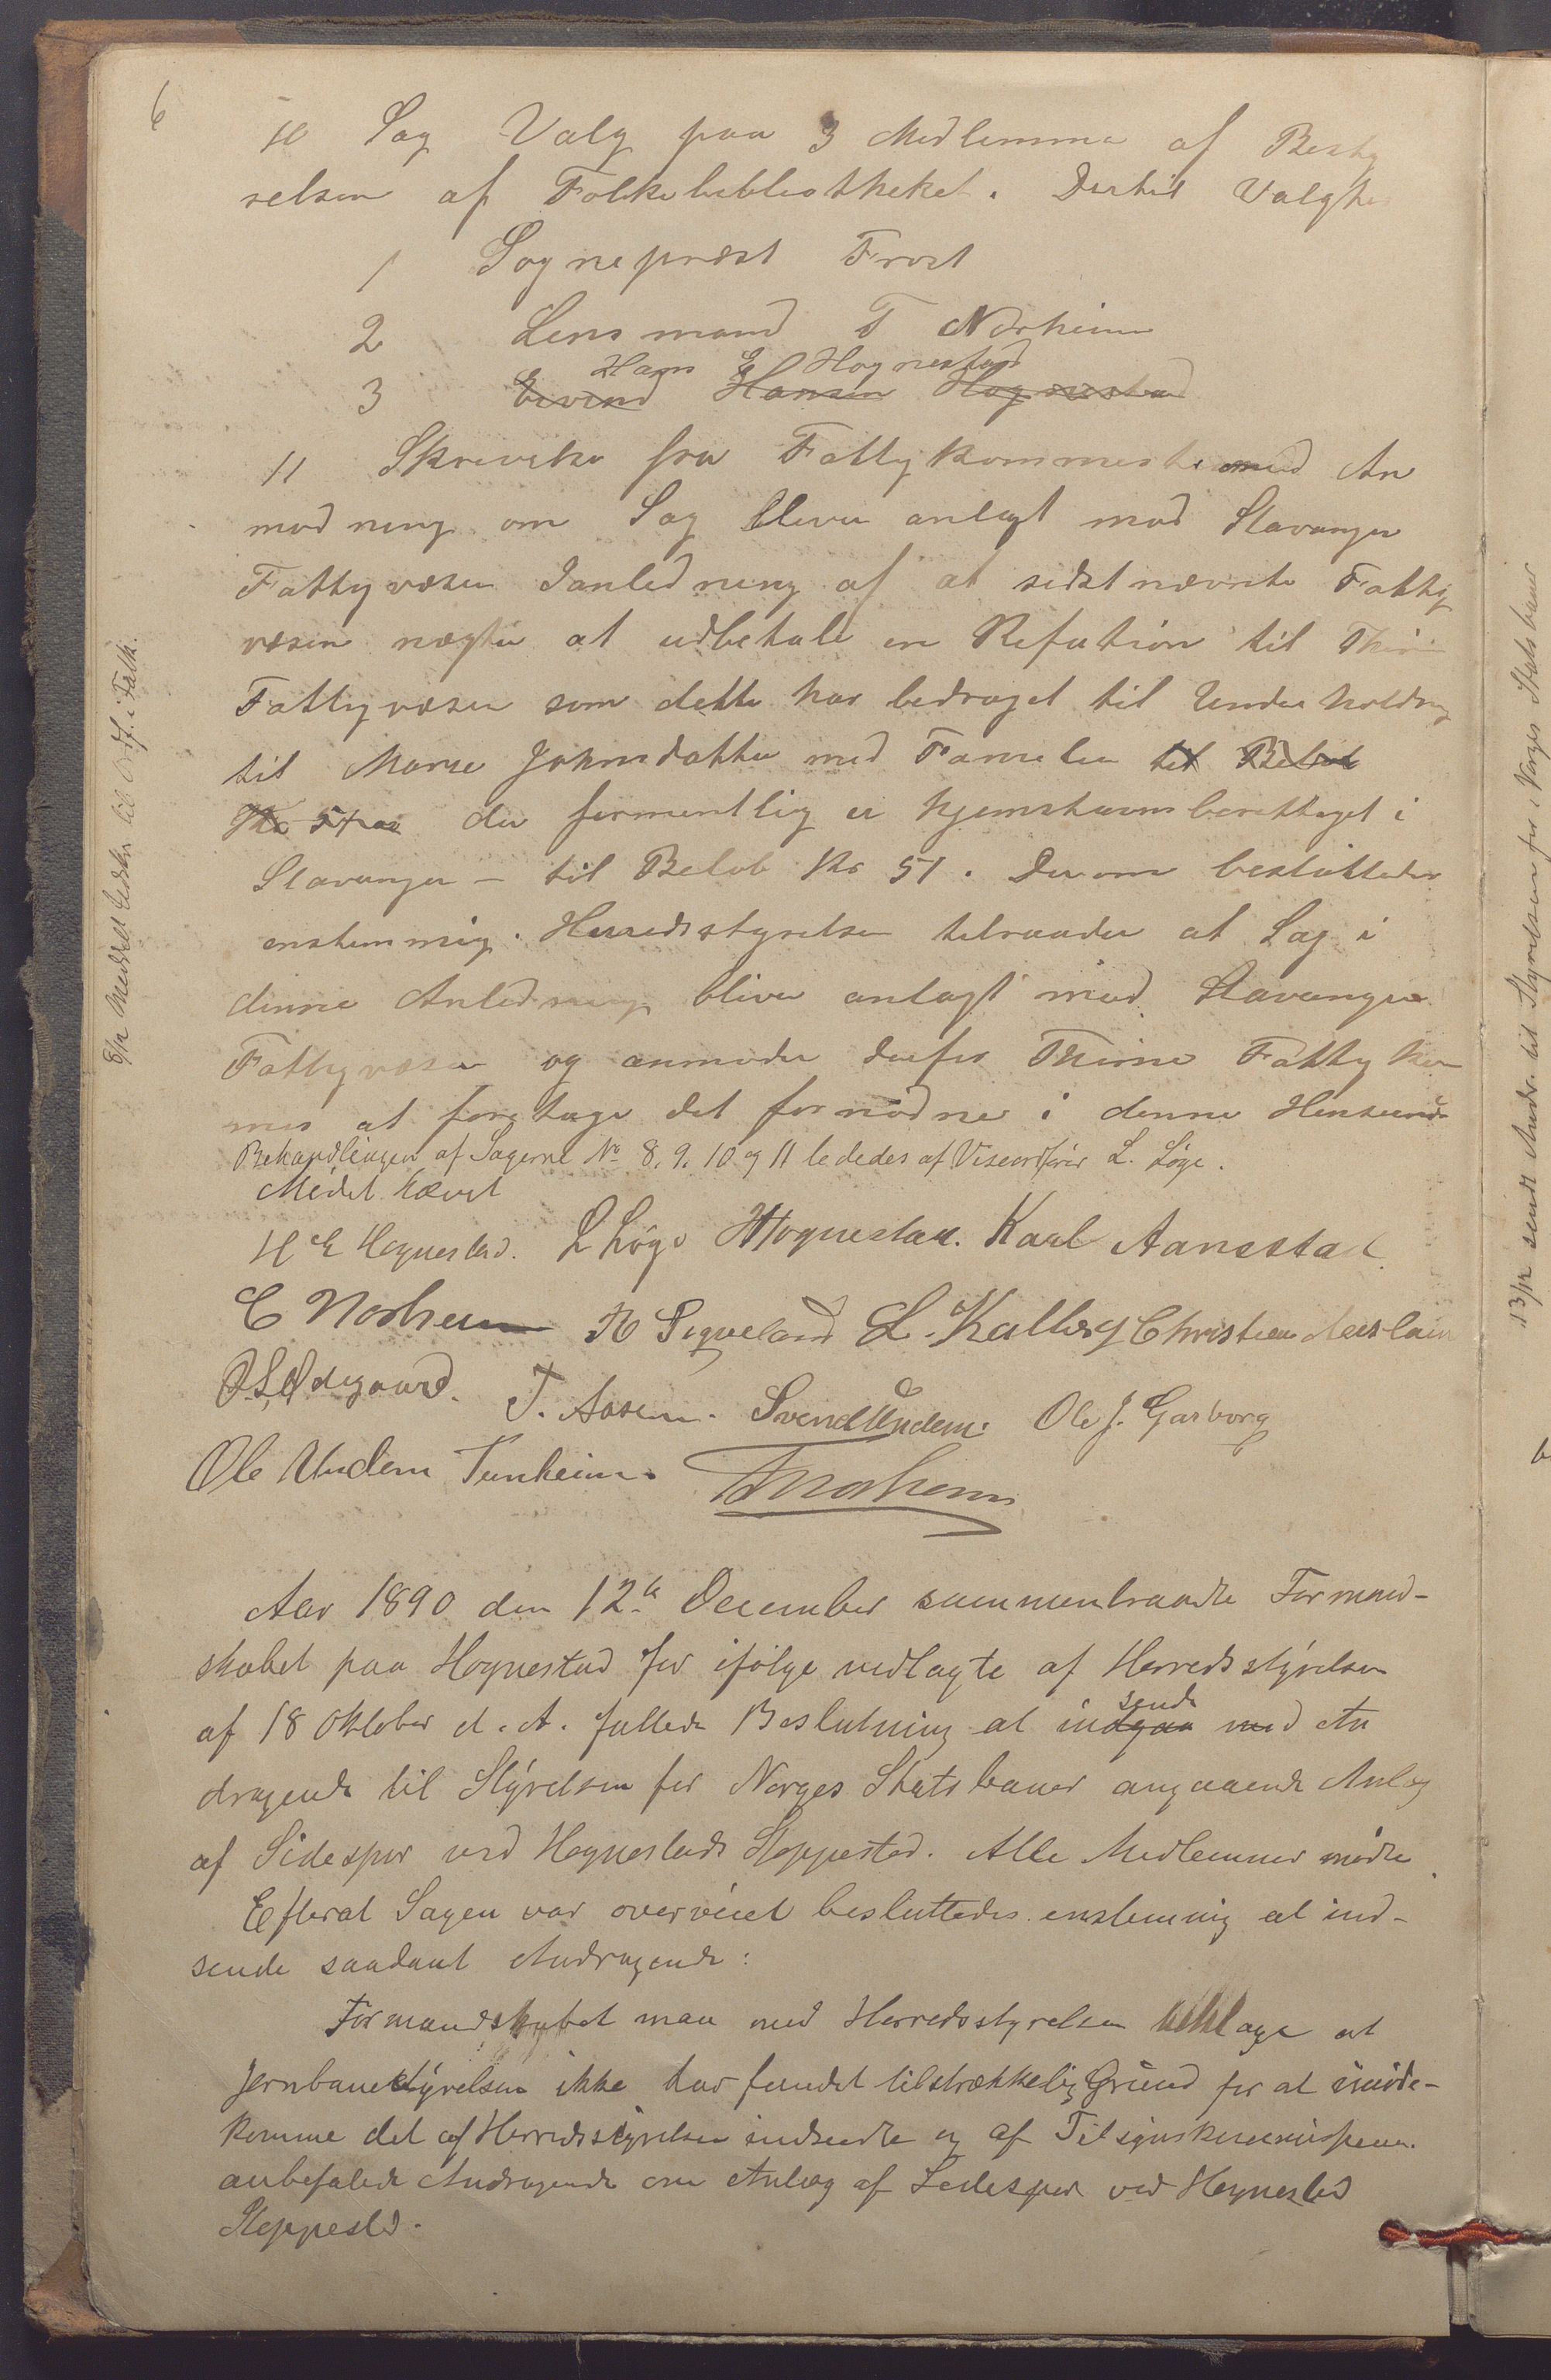 6
10 Sag Valg paa 3 Medlemme af Besty
relsen af Folkebibliotheket. Dertil Valgtes
1 Sogneprest Frost
2 Lensmand T Norheim
Hans E Hognestad
3 Eivind Hansen Hognestad
11 Skrivelse fra Fattigkommes med An
modning om Sag bliver anlagt mod Stavanger
Fattigvæsen Ianledning af at sidstnævnte Fattig
væsen nægter at udbetale en Refution til Thime
Fattigvæsen som dette har bedraget til Underholdning
til Marie Johnsdatter med Famelie til Beløb
Kr 51 der formentlig er hjemstavnsberettiget i
Stavanger – til Beløb Kr 51. Derom besluttedes
enstemmig. Herredsstyrelsen tilraader at Sag i
denne Anledning bliver anlagt mod Stavanger
Fattigvæsen og anmoder derfor Thime Fattigkom
mis at foretage det fornødne i denne Henseende
Behandlingen af Sagerne No 8, 9, 10 og 11 lededes af Viseordfører L. Løge.
Mødet hævet
H E Hognestad. L Løge H Hognestad. Karl Aanestad.
E Norheim H Sigveland L. Kalberg Christian Auslain
O. S. Ødegaard. T. Aasen. Svend Undem. Ole J. Garborg
Ole Undem Tunheim. T Norheim
Aar 1890 den 12te December sammentraadte Formand-
skabet paa Hognestad for ifølge vedlagte af Herredsstyrelsen
sende
af 18 Oktober d. A. fattede Beslutning at indgaa med An
dragende til Styrelsen for Norges Statsbaner angaaende Anlæg
af Sidespor ved Hognestads Stoppested. Alle Medlemmer mødte.
Efterat Sagen var overveiet besluttedes enstemmig at ind-
sende saadant Andragende:
Formandskabet maa med Herredsstyrelsen beklage at
Jernbanestyrelsen ikke har fundet tilstrækkelig Grund for at imøde-
komme det af Herredsstyrelsen indsendte og af Tilsynskommissionen
anbefalede Andragende om Anlæg af Sidespor ved Hognestad
Stoppested.
Meddelt Ledsker til Ordf. i Fattk.
13/12 sendt Andr. til Styrelsen for Norges Statsbaner